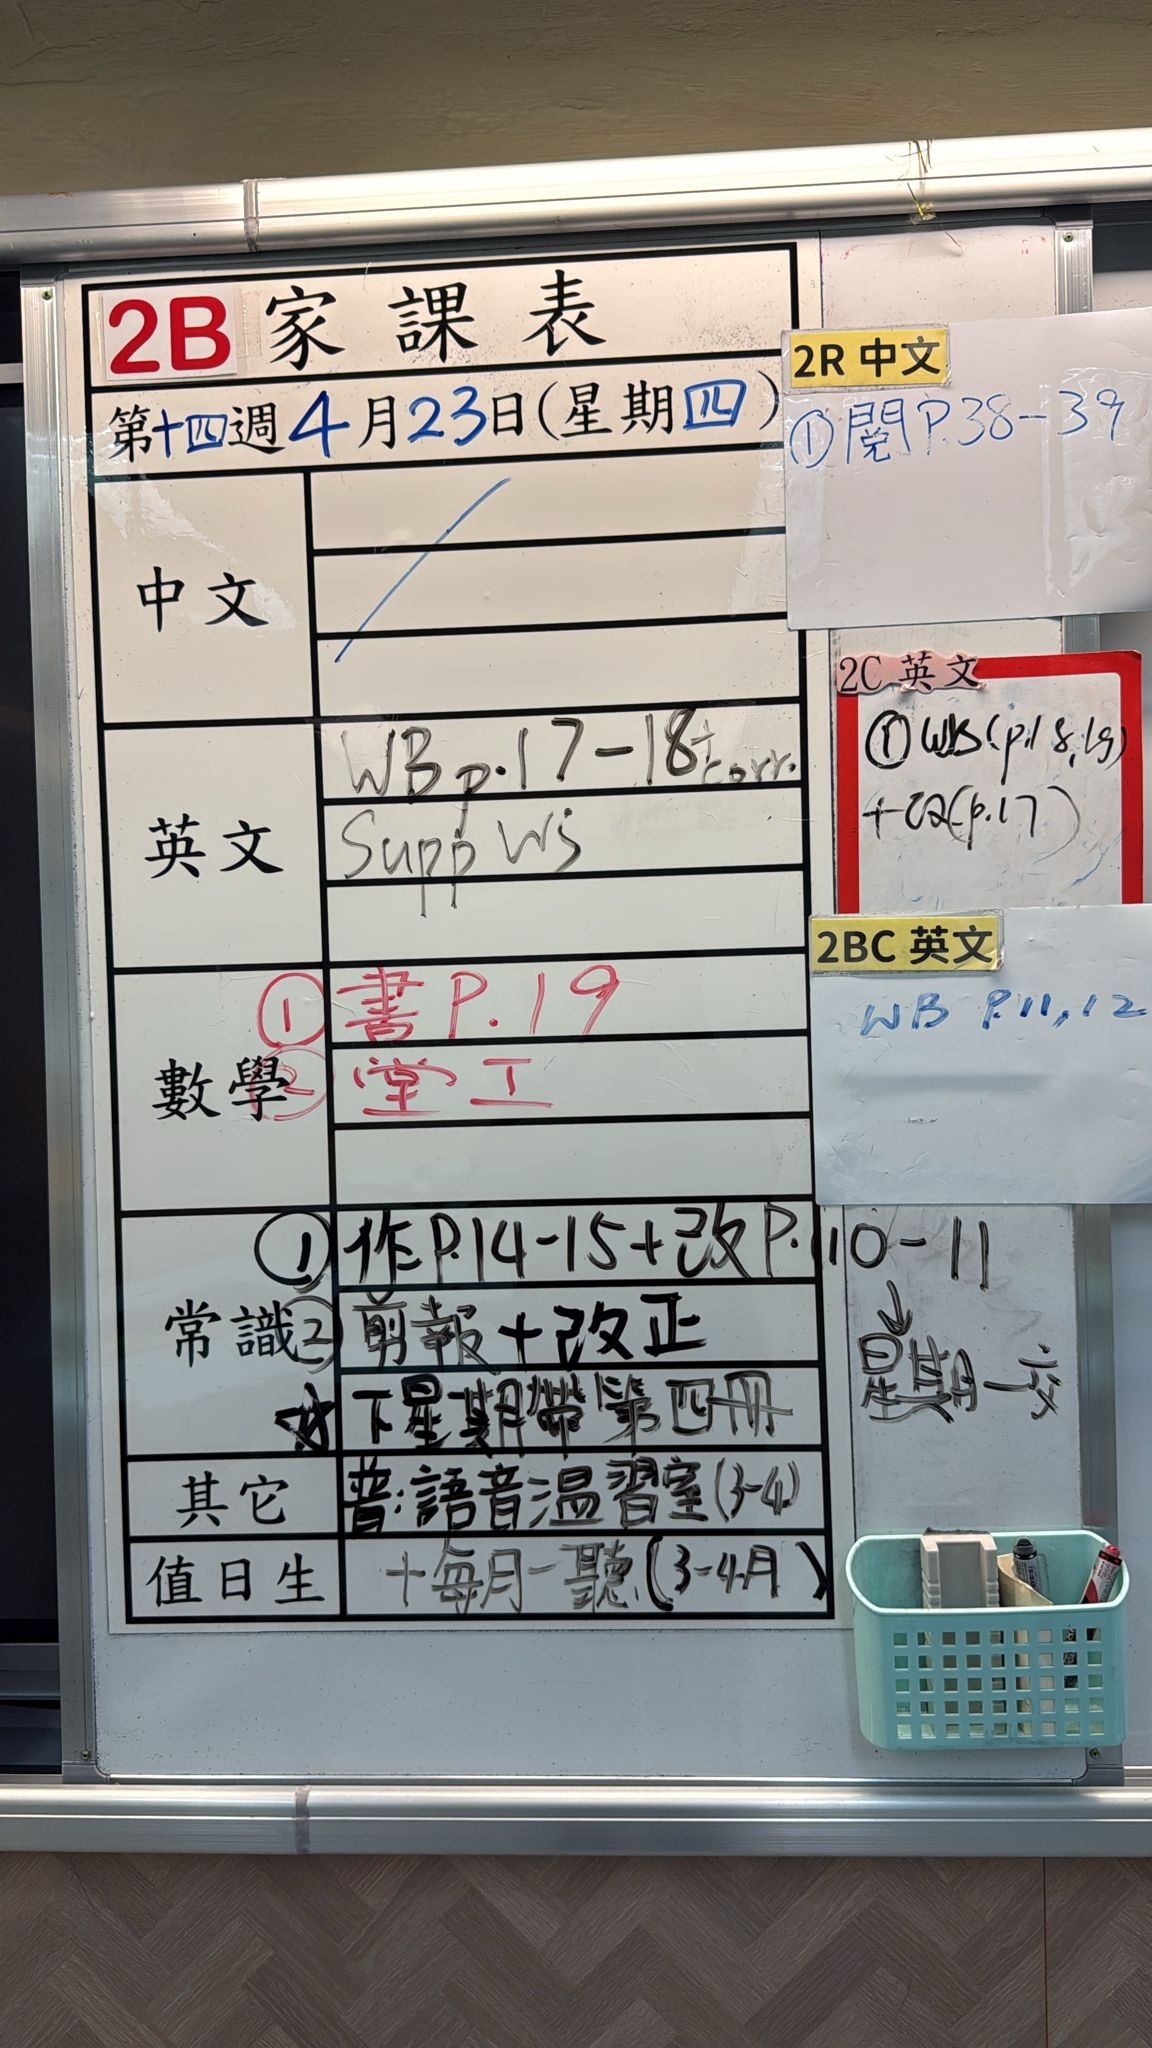 2B 家課表
第十四週 4月23日(星期四)
中文
英文
WB p.17-18 + corr.
Supp WS
數學
① 書 P.19
② 堂工
常識
① 作 P.14-15 + 改 P.10-11
↓
星期一交
② 剪報 + 改正
☆ 下星期帶第四冊
其它
普:語音温習室(3-4)
值日生
+每月一聽(3-4月)
2R 中文
① 閱 P.38-39
2C 英文
① WB(p.18,19)
(p.17)
2BC 英文
WB P.11,12